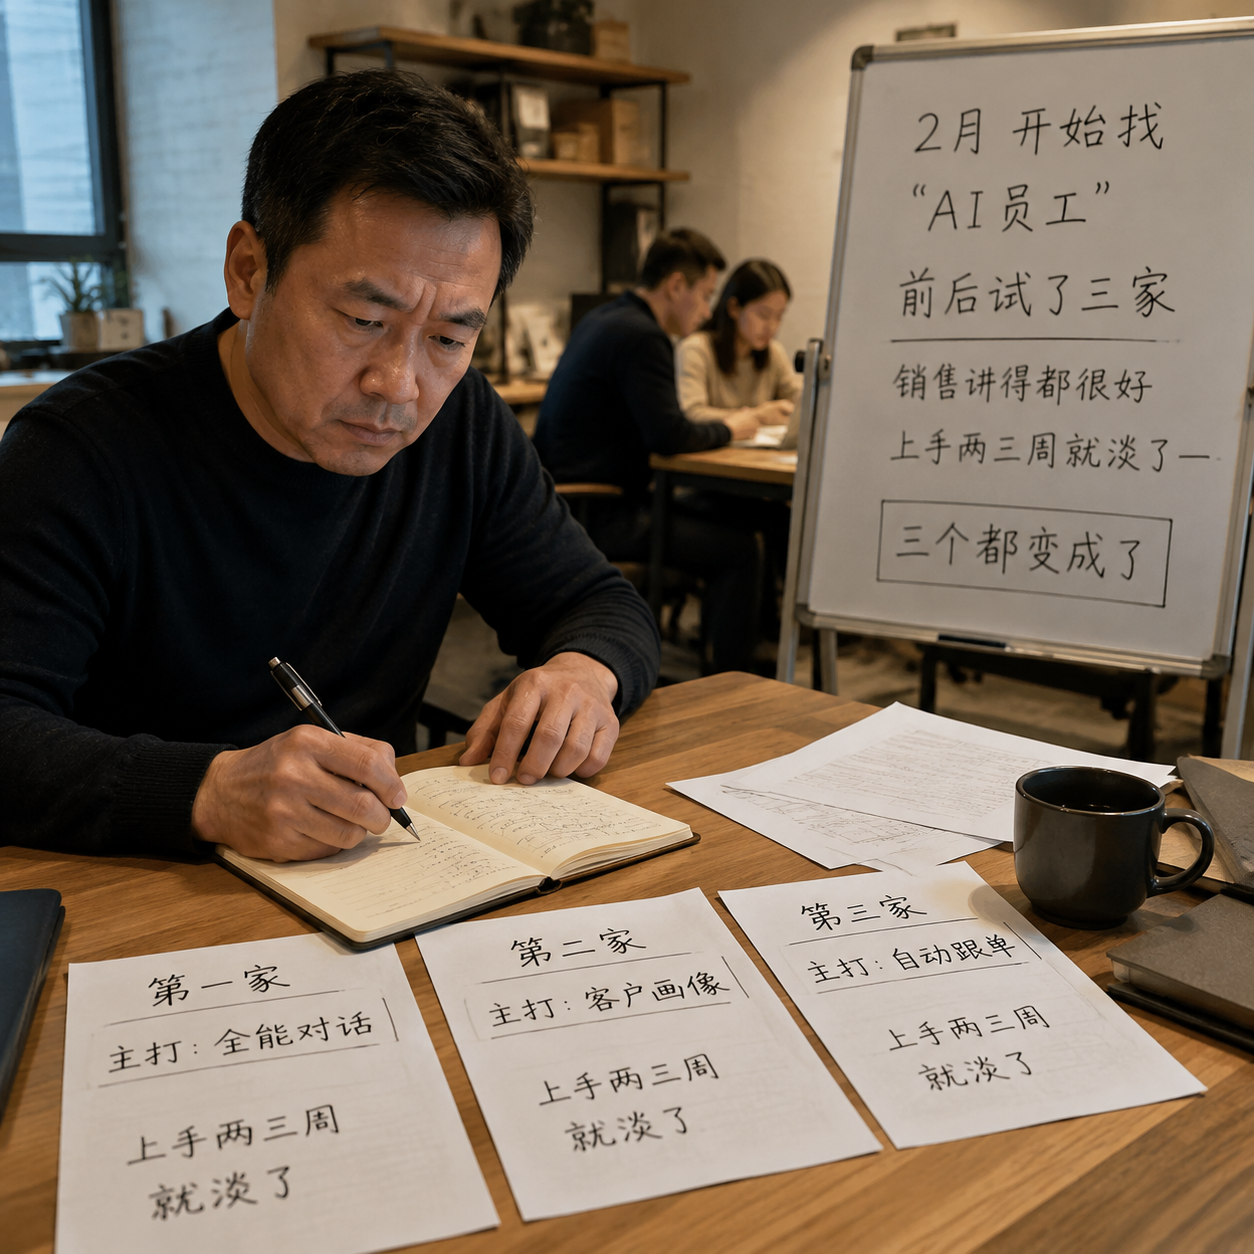 2月 开始找
“AI员工”
前后试了三家
销售讲得都很好
上手两三周就淡了—
三个都变成了
第一家
主打：全能对话
上手两三周
就淡了
第二家
主打：客户画像
上手两三周
就淡了
第三家
主打：自动跟单
上手两三周
就淡了